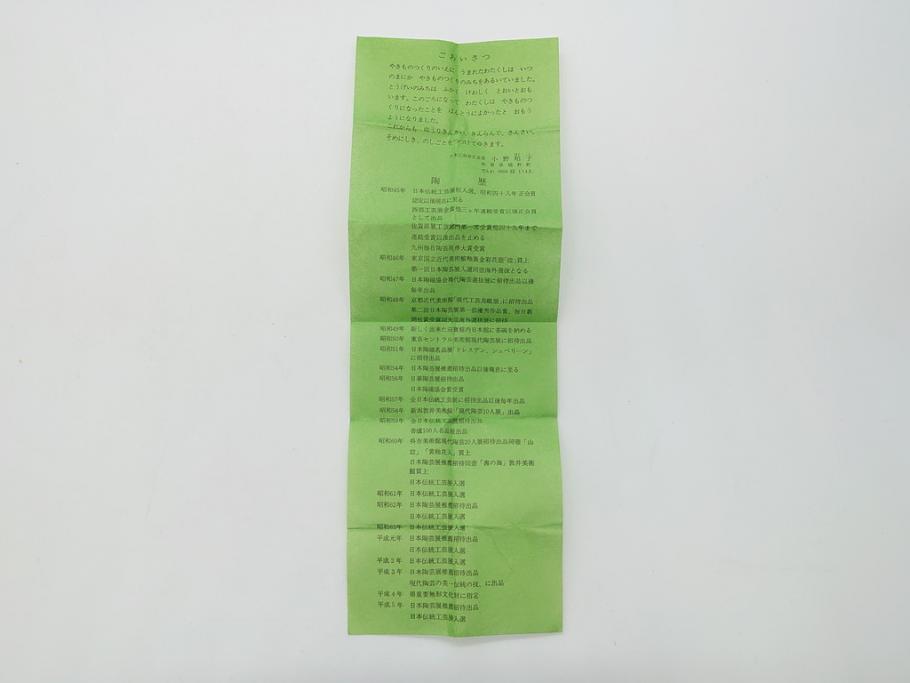 ごあいさつ
やきものつくりのいえに うまれたわたくしは いつ
のまにか やきものつくりのみちをあるいていました。
とうげいのみちは ふかく けわしく とおいとおも
います。このごろになって わたくしは やきものつ
くりになったことを ほんとうによかったと おもう
ようになりました。
これからも ゆうりきんさい、きんらんで、きんさい、
そめにしき、のしごとを
小野珀子
陶歴
昭和45年 日本伝統工芸展初入選、昭和四十八年正会員
認定以後現在に至る
西部工芸展 三ヶ年連続受賞以後正会員
として出品
佐賀県展工芸部門第一席受賞他四十九年まで
連続受賞以後出品を止める
九州毎日陶芸展伴大賞受賞
昭和46年 東京国立近代美術館釉裏金彩花壺 買上
第一回日本陶芸展入選同壺海外選抜となる
昭和47年 日本陶磁協会現代陶芸選抜展に招待出品以後
毎年出品
昭和48年 京都近代美術館「現代工芸鳥瞰展」に招待出品
第二回日本陶芸展第一部優秀作品賞、毎日新
聞社賞受賞同大皿海外選抜展に招待
昭和49年 新しく出来た迎賓館内日本館に茶碗を納める
昭和50年 東京セントラル美術館現代陶芸展に招待出品
昭和51年 日本陶磁名品展「ドレスデン、シュベリーン」
に招待出品
昭和54年 日本陶芸展推薦招待出品以後現在に至る
昭和56年 日華陶芸展招待出品
日本陶磁協会賞受賞
昭和57年 全日本伝統工芸展に招待出品以後毎年出品
昭和58年 新潟敦井美術館「現代陶芸10人展」出品
昭和59年 全日本伝統工芸展招待出品
香盛100人名品展出品
昭和60年 呉市美術館現代陶芸20人展招待出品同壺「山
」「黄釉花入」買上
日本陶芸展推薦招待同壺「海の海」敦井美術
館買上
日本伝統工芸展入選
昭和61年 日本伝統工芸展入選
昭和62年 日本陶芸展推薦招待出品
日本伝統工芸展入選
昭和63年 日本伝統工芸展入選
平成元年 日本陶芸展推薦招待出品
日本伝統工芸展入選
平成2年 日本伝統工芸展入選
平成3年 日本陶芸展推薦招待出品
現代陶芸の美-伝統の技、に出品
平成4年 県重要無形文化財に指定
平成5年 日本陶芸展推薦招待出品
日本伝統工芸展入選